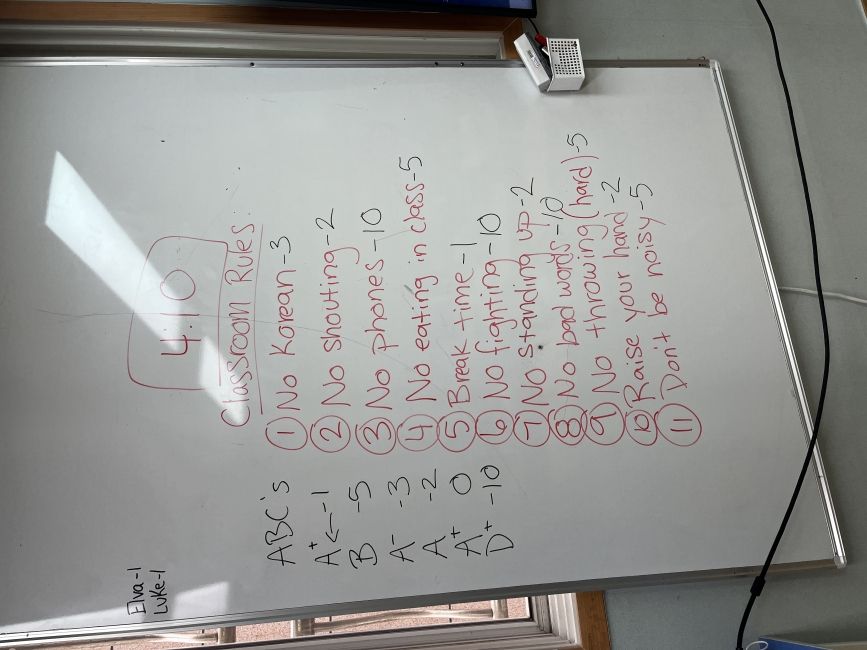 Elva-1
Luke-1
4:10
Classroom Rules:
① No Korean -3
② No shouting -2
③ No phones -10
④ No eating in class -5
⑤ Break time -1
⑥ No fighting -10
⑦ No standing up -2
⑧ No bad words -10
⑨ No throwing (hard) -5
⑩ Raise your hand -2
⑪ Don't be noisy -5
ABC's
A+ ← -1
B -5
A- -3
A -2
A+ 0
D+ -10